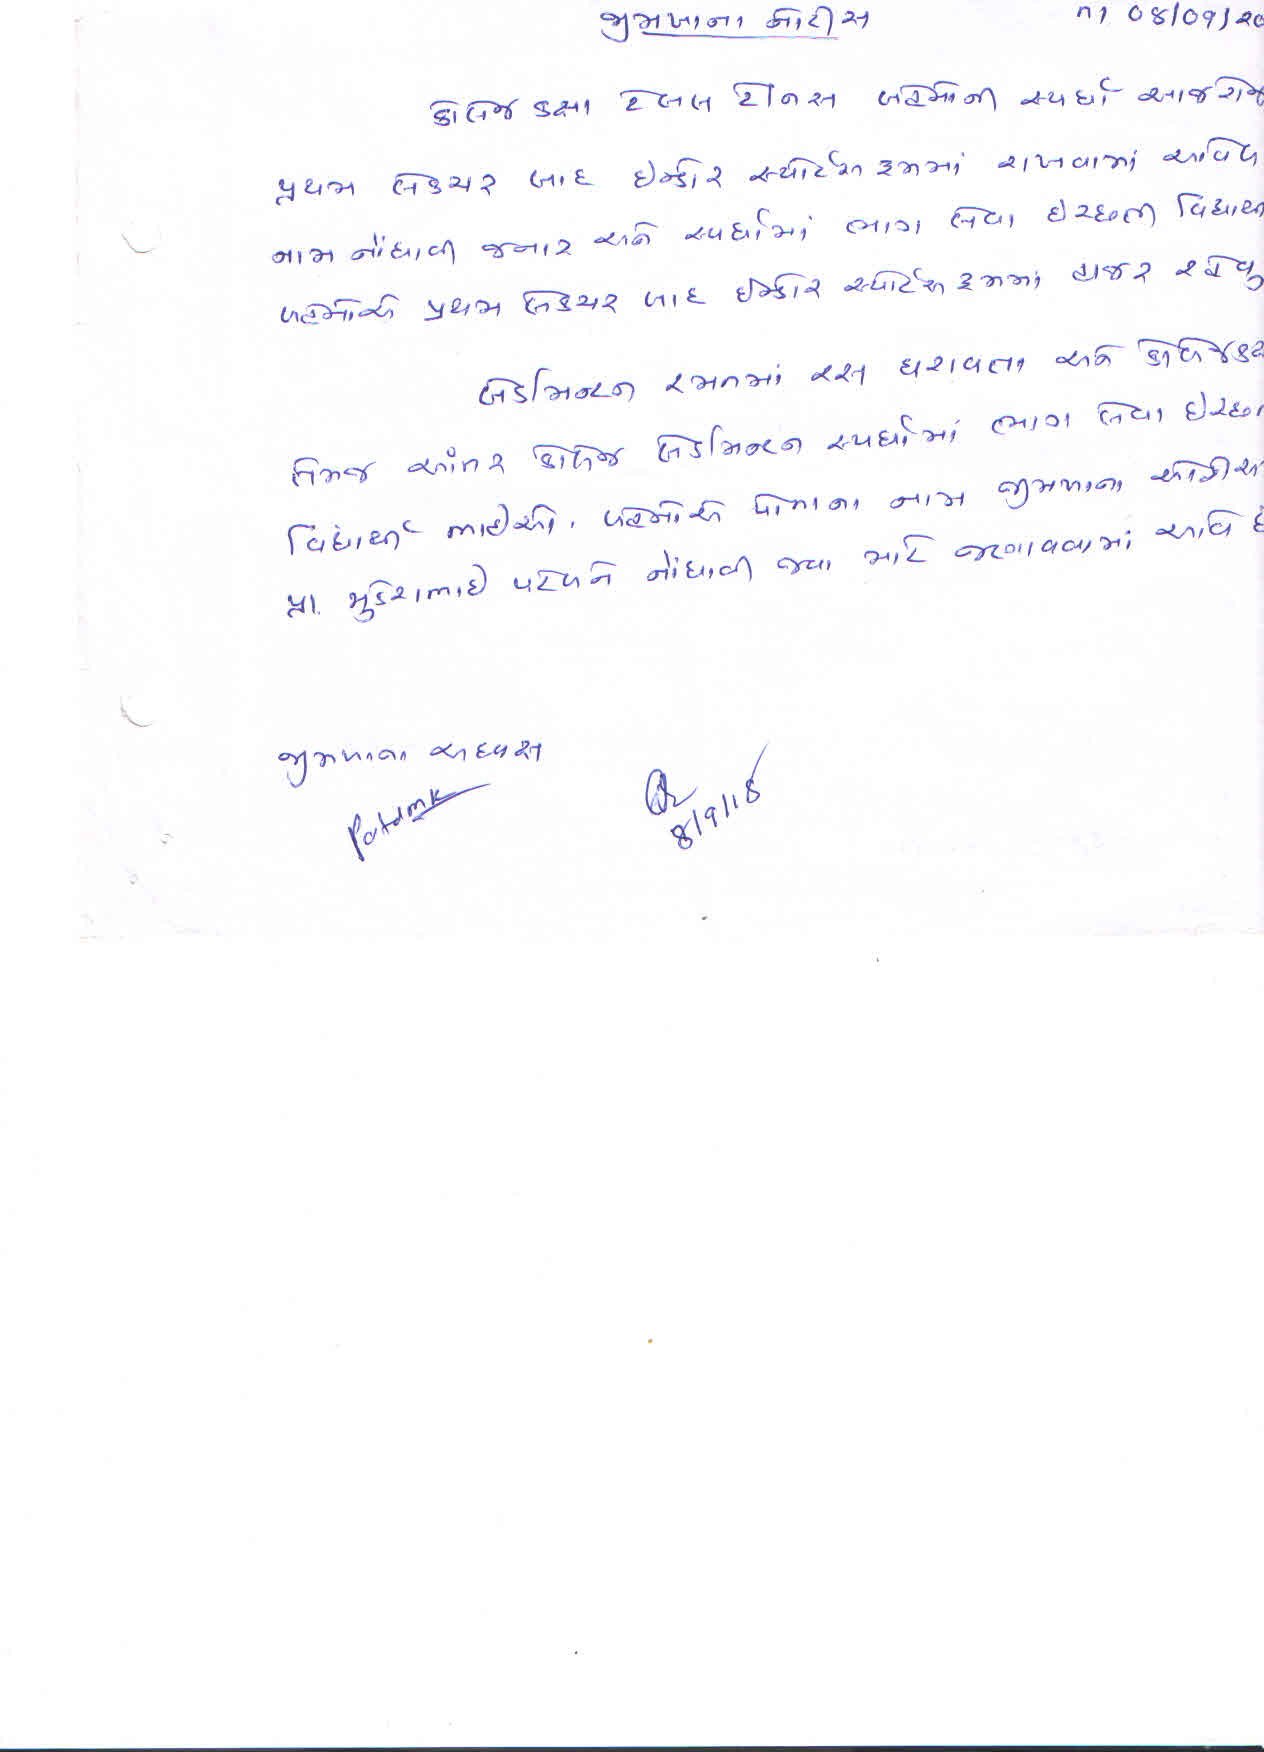 જીમખાના નોટીસ તા 08/09/20
કોલેજ કક્ષા ટેબલ ટેનિસ બહેનોની સ્પર્ધા આજરોજ
પ્રથમ લેક્ચર બાદ ઈન્ડોર સ્પોર્ટસ રૂમમાં રાખવામાં આવેલ
નામ નોંધાવી જનાર અને સ્પર્ધામાં ભાગ લેવા ઈચ્છતી વિદ્યાર્થી
બહેનોએ પ્રથમ લેક્ચર બાદ ઈન્ડોર સ્પોર્ટસ રૂમમાં હાજર રહેવુ
બેડમિન્ટન રમતમાં રસ ધરાવતા અને કોલેજકક્ષા
તેમજ આંતર કોલેજ બેડમિન્ટન સ્પર્ધામાં ભાગ લેવા ઈચ્છતા
વિદ્યાર્થી ભાઈઓ, બહેનોએ પોતાના નામ જીમખાના ઓફીસ
પ્રા. મુકેશભાઈ પટેલને નોંધાવી જવા માટે જણાવવામાં આવે છે
જીમખાના અધ્યક્ષ
Patelmk
8/9/18